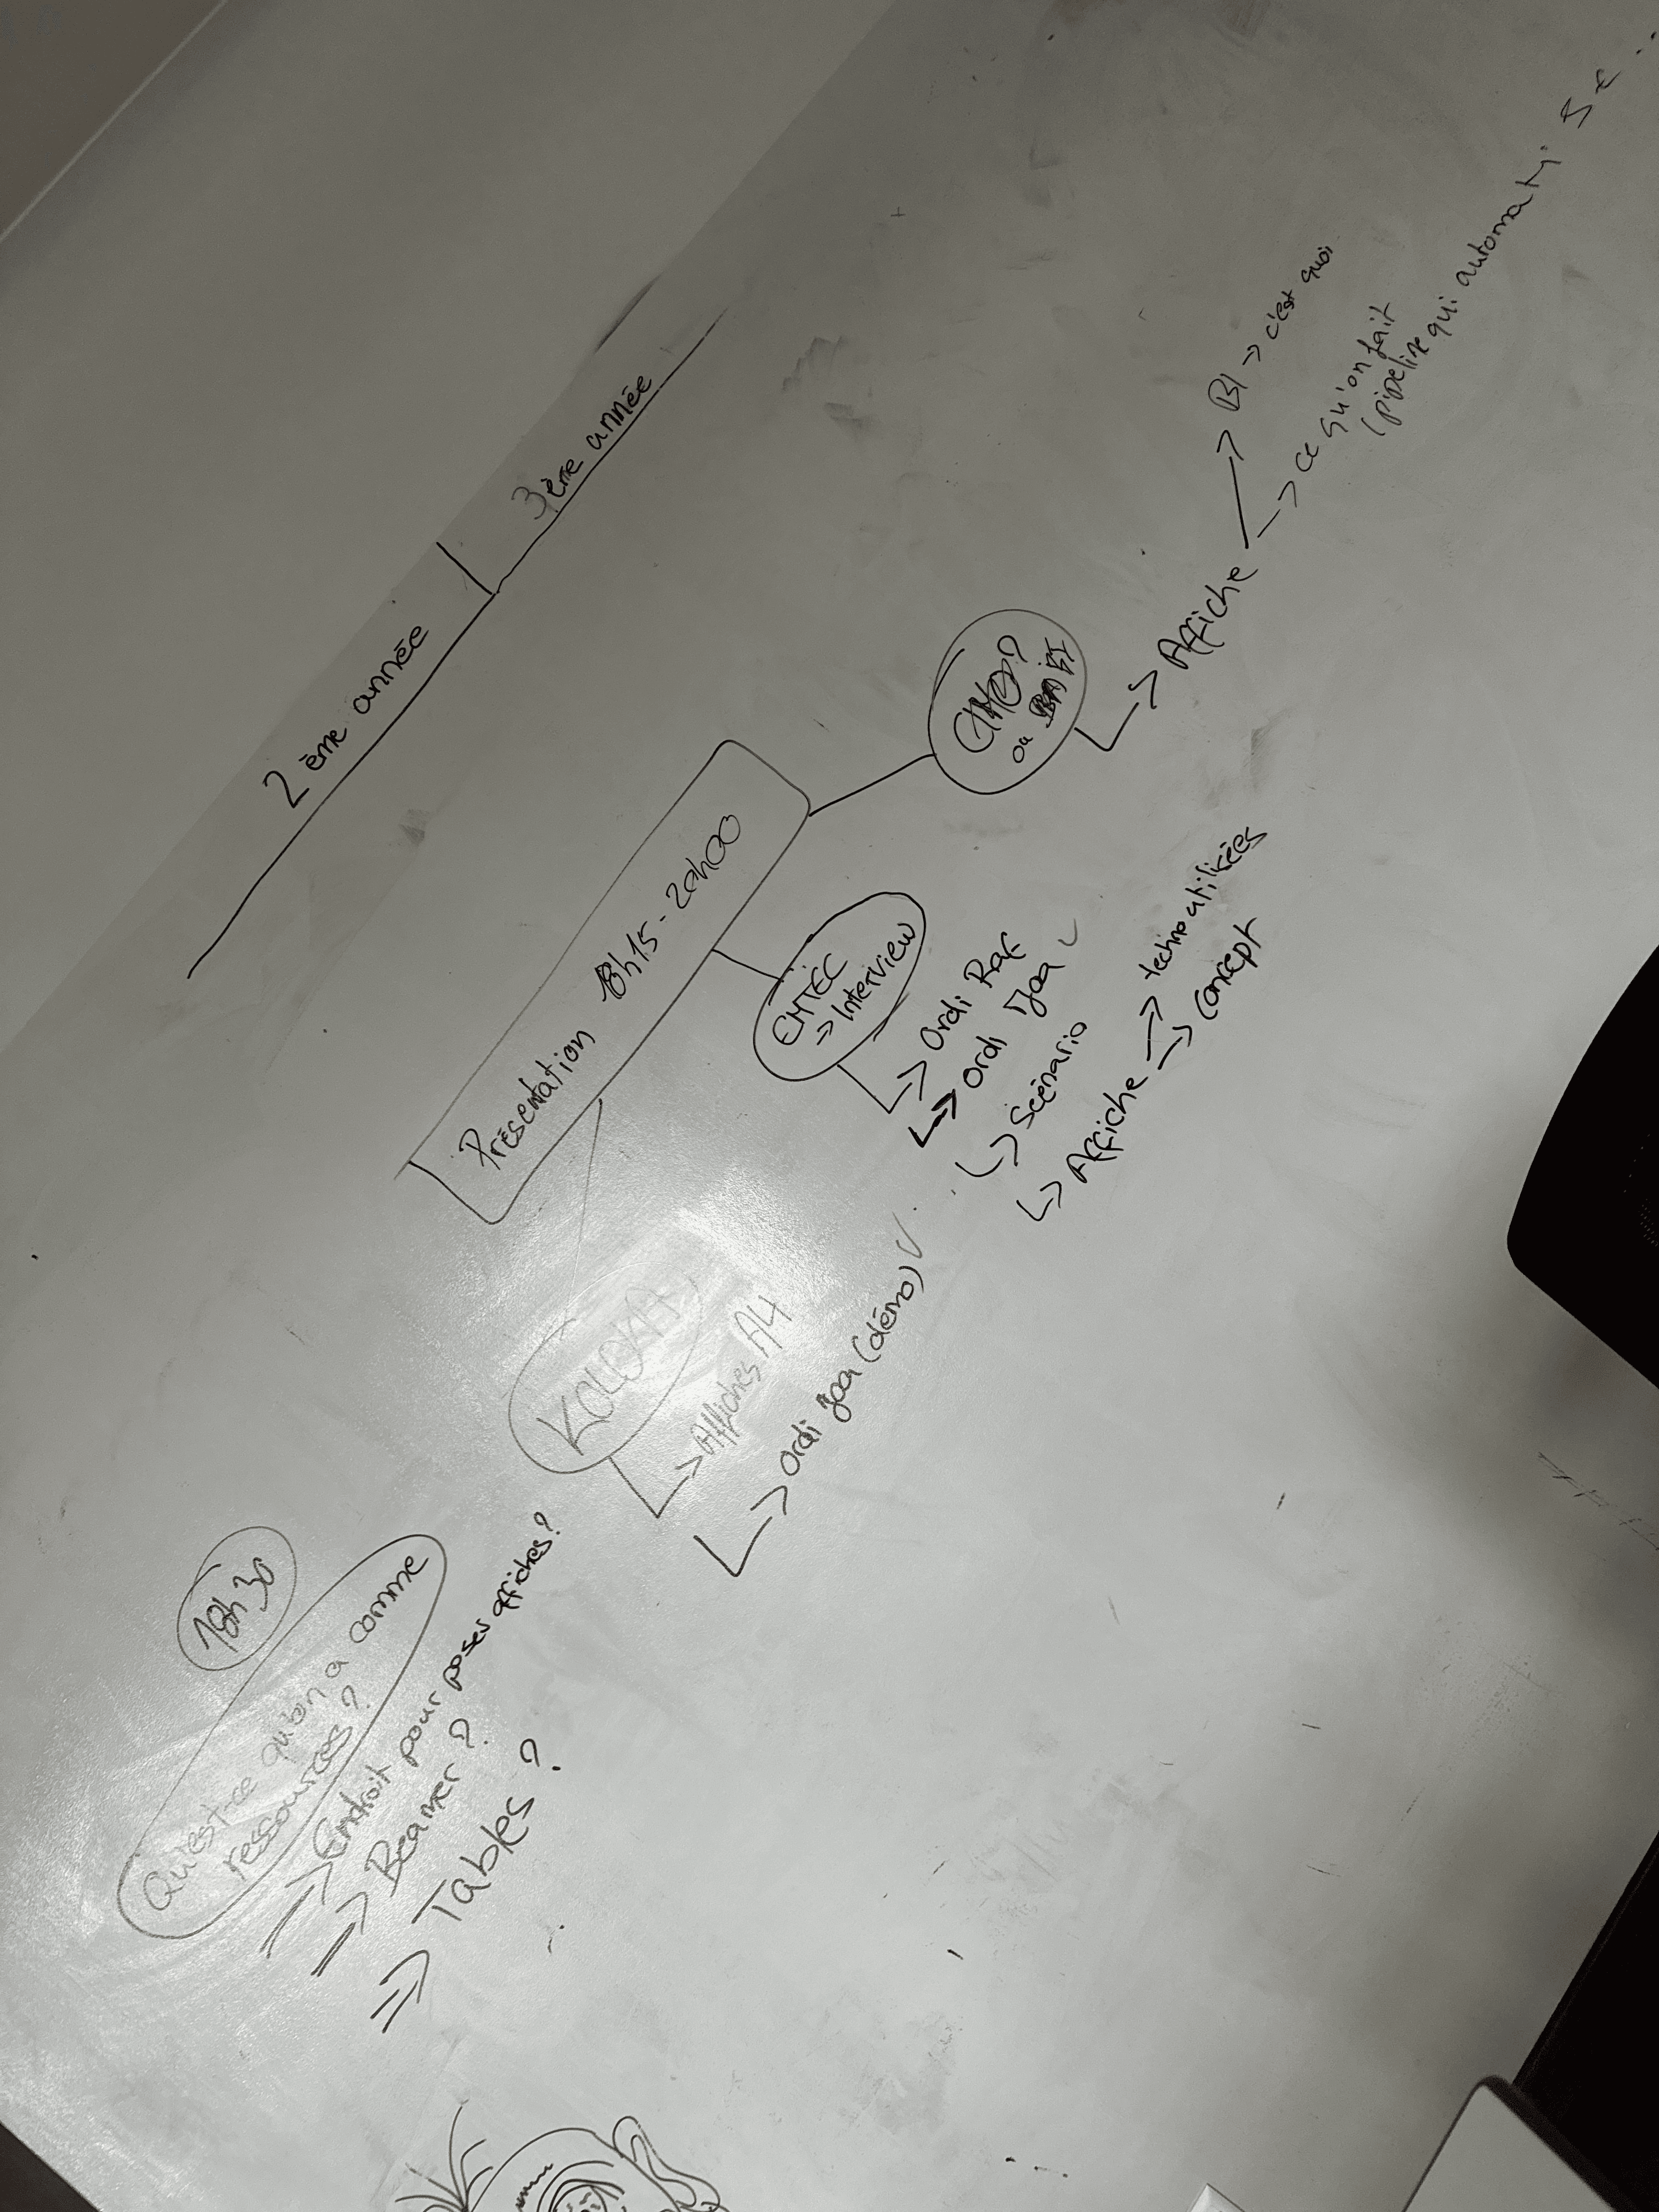 2ème année
3ème année
Présentation 18h15-20h00
18h30
Qu'est-ce qu'on a comme
ressources?
=> Endroit pour poser affiches?
=> Beamer?
=> Tables?
-> Affiches A4
-> Ordi Joa (démo)
EMTEC
=> Interview
-> Ordi Raf
-> Ordi Joa
-> Scénario
-> Affiche
-> techno utilisées
-> concept
ou
-> Affiche
-> BI -> c'est quoi
-> ce qu'on fait
(pipeline qui automatise...